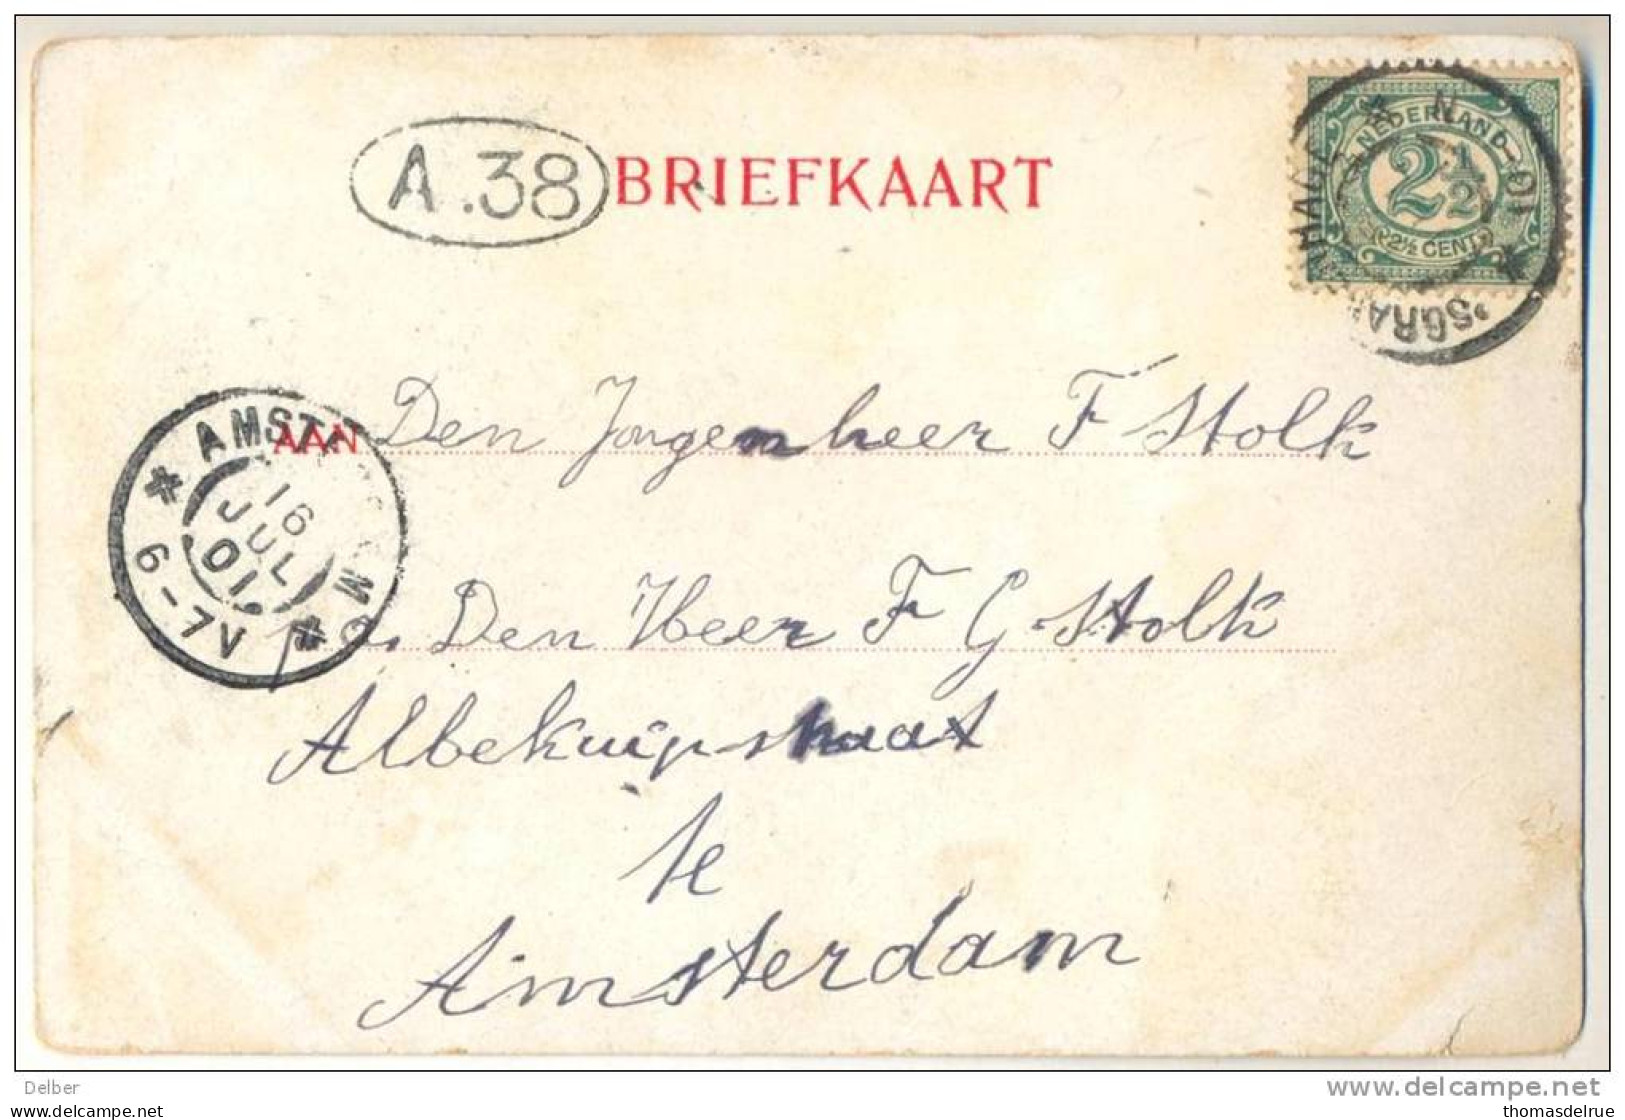 A.38 BRIEFKAART
NEDERLAND
2½
(2½ CENT)
'SGRAVENHAGE
AMSTERDAM
16
JUL
01
6-7V
AAN Den Jongenheer F Stolk
p/a. Den Heer F G. Stolk
Albekuipstraat
te
Amsterdam
Delber
delcampe.net
thomasdelrue